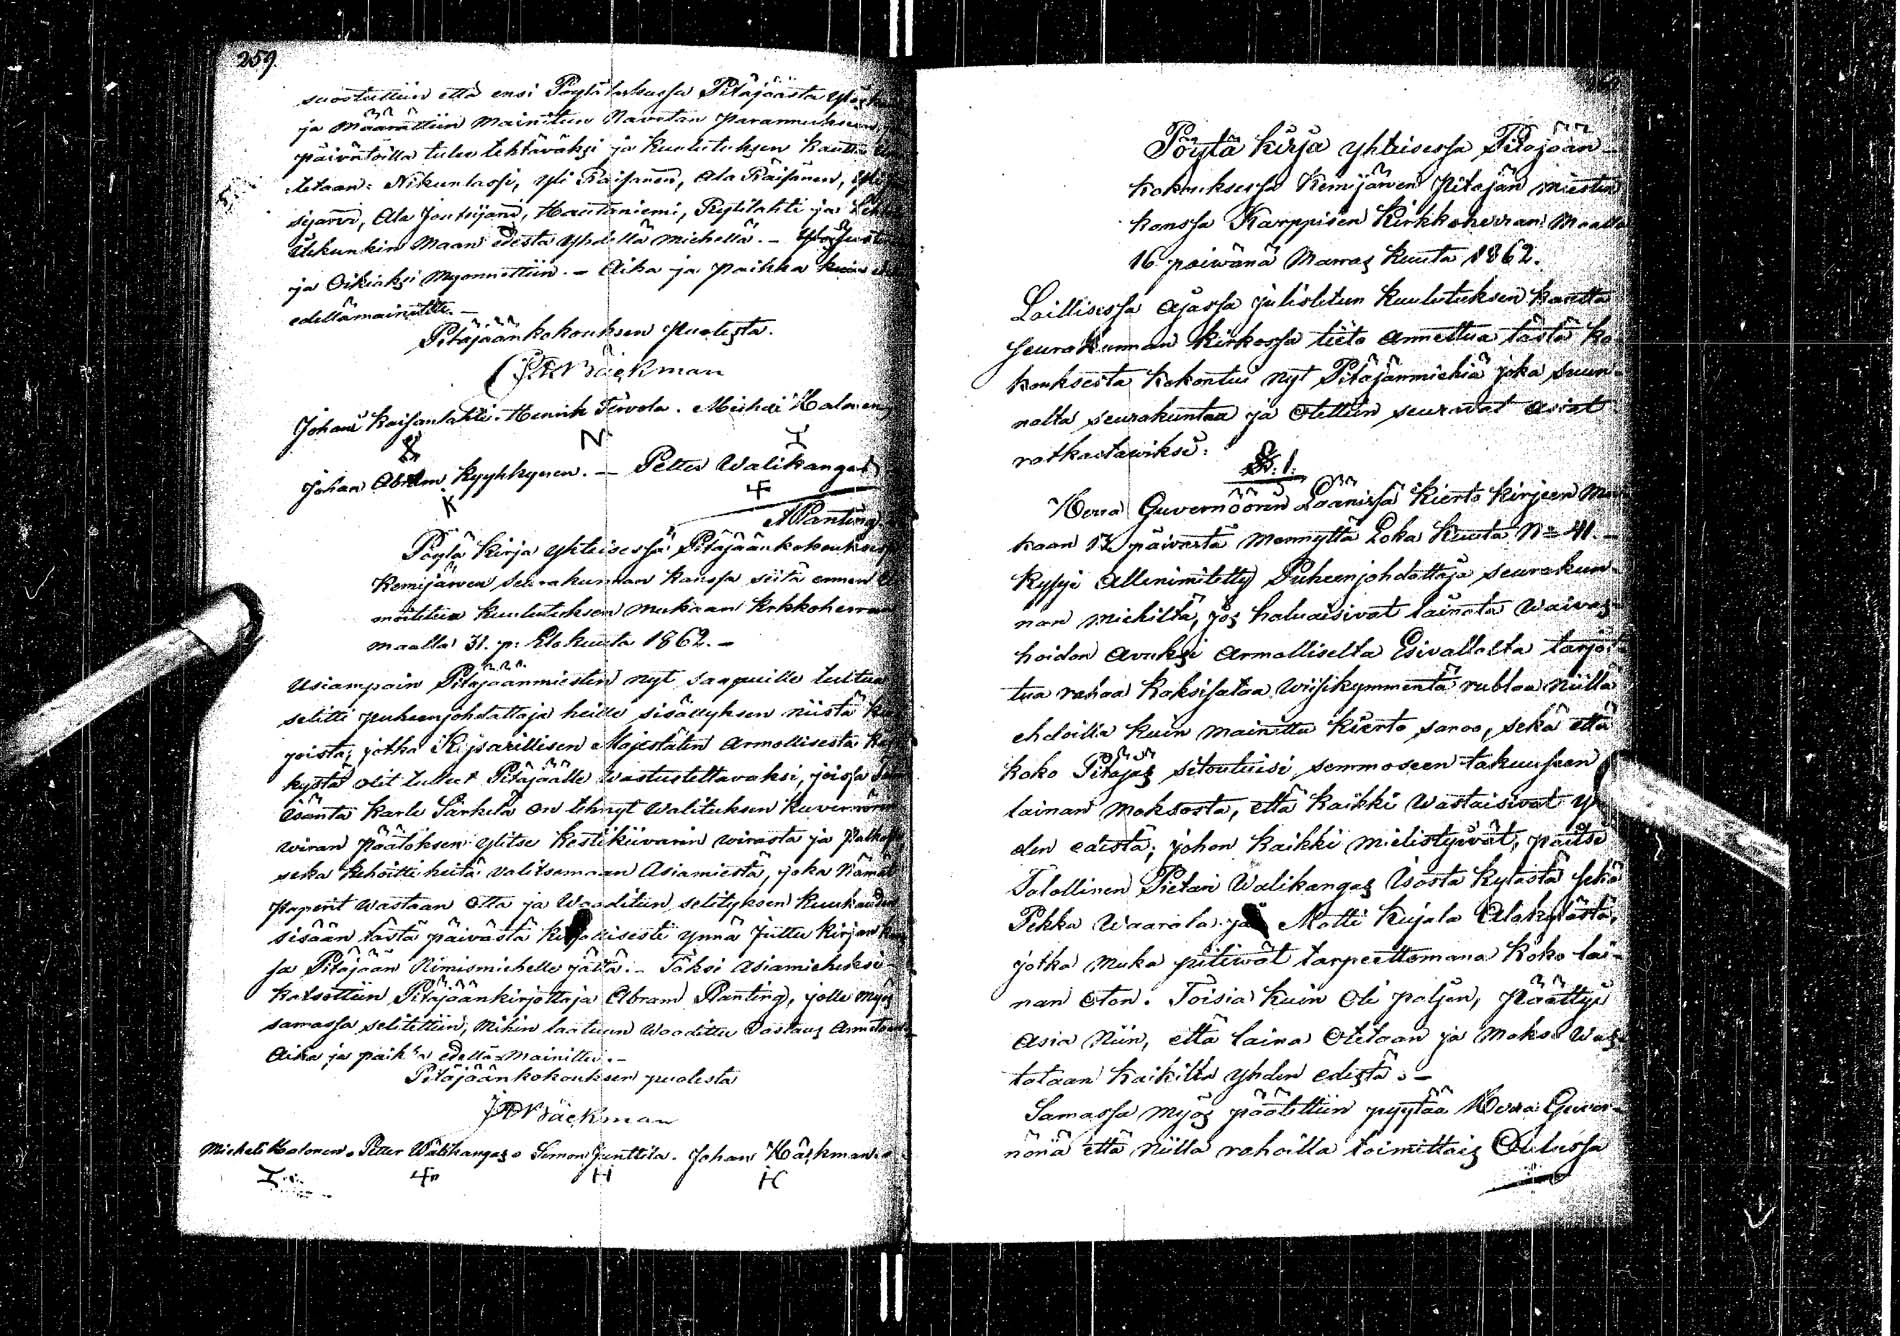 259.
suostuttiin että ensi Pöytäluhussa Pitäjäästä
ja määrättiin mainitun Navetan parannukseen
päivätöillä tulee tehtäväksi ja kuulutuksen kautta
tetaan: Nikunlassi, Yli Räisänen, Ala Räisänen,
sijarvi, Ala Joutsijarvi, Hautaniemi, Pyylilahti ja
itekunkin Maan edestä yhdellä miehellä. –
ja Oikiaksi myönnettiin. – Aika ja paikka kuin
edellämainittu. –
Pitäjäänkokouksen puolesta.
J. W. Bäckman
Johan Kaisanlahti. Henrik Tervola. Micheli Halonen,
N I
Johan Abram Kyyhkynen. – Petter Walikangas
K 4
A Planting.
Pöytä kirja yhteisessä Pitäjäänkokouksessa
Kemijärven seurakunnan kanssa siitä ennen
moitetun kuulutuksen mukaan Kirkkoherran
maalla 31. p: Elokuuta 1862. –
Usiampain Pitäjäänmiesten nyt saapuille tultua
selitti puheenjohdattaja heille sisällyksen niistä
joista, jotka Kejsarillisen Majestätin armollisesta
kystä olit tullut Pitäjäälle wastustettavaksi, joissa
isäntä Karle Särkelä on tehnyt walituksen Kuvernörin
wiran päätöksen ylitse Kestikiivarin wirasta ja
seka kehoitti heitä valitsemaan Asiamiestä, joka Nämät
Paperit wastaan otta ja Waaditun selityksen Kuukauden
sisään tästä päivästä kirjallisesti ynnä Juttu kirjan
sa Pitäjään Nimismiehelle jättä. – Täksi asiamieheksi
katsottiin Pitäjäänkirjottaja Abram Planting, jolle myös
samassa selitettiin, mihin laatuun waadittu Vastaus Annetaan
Aika ja paikka edellä Mainittu. –
Pitäjäänkokouksen puolesta
J W Bäckman
Micheli Halonen. Petter Walikangas. Simon Junttila. Johan Häckman.
I 4 H H
Pöytä kirja yhteisessä Pitäjään
kokouksessa Kemijärven Pitäjän miesten
kanssa Karppisen Kirkkoherran Maalla
16 päiwänä Marras kuuta 1862.
Laillisessa ajassa julistetun kuulutuksen kautta
seurakunnan kirkossa tieto annettua tästä ko
kouksesta kokontui nyt Pitäjänmiehiä joka suun
nalta seurakuntaa ja otettiin seuravat asiat
ratkastawiksi:
§: 1:
Herra Guvernöörin Läänissä kierto kirjeen
kaan päivästä mennyttä Loka Kuuta No 41. –
kysyi Allenimitetty Puheenjohdattaja seurakun
nan miehiltä, jos haluaisivat lainata Waivas
hoidon avuksi armolliselta Esivallalta tarjot
tua rahaa kaksisataa wiisikymmentä rublaa niillä
ehdoilla kuin mainittu kierto sanoo, sekä että
koko Pitäjäs sitoutuisi semmoseen takuuseen
lainan maksosta, että kaikki wastaisivat yh
den edestä; johon kaikki mielistyivät, paitsi
Talollinen Pietari Walikangas Isosta kylästä sekä
Pekka Waarala ja Matti Kujala Alakylästä,
jotka muka pitivät tarpeettomana koko lai
nan oton. Toisia kuin oli paljon, päättyi
asia niin, että laina otetaan ja makso was
tataan kaikilta yhden edestä. –
Samassa myös päätettiin pyytää Herra Guver
nöriä että niillä rahoilla toimittais Oulussa